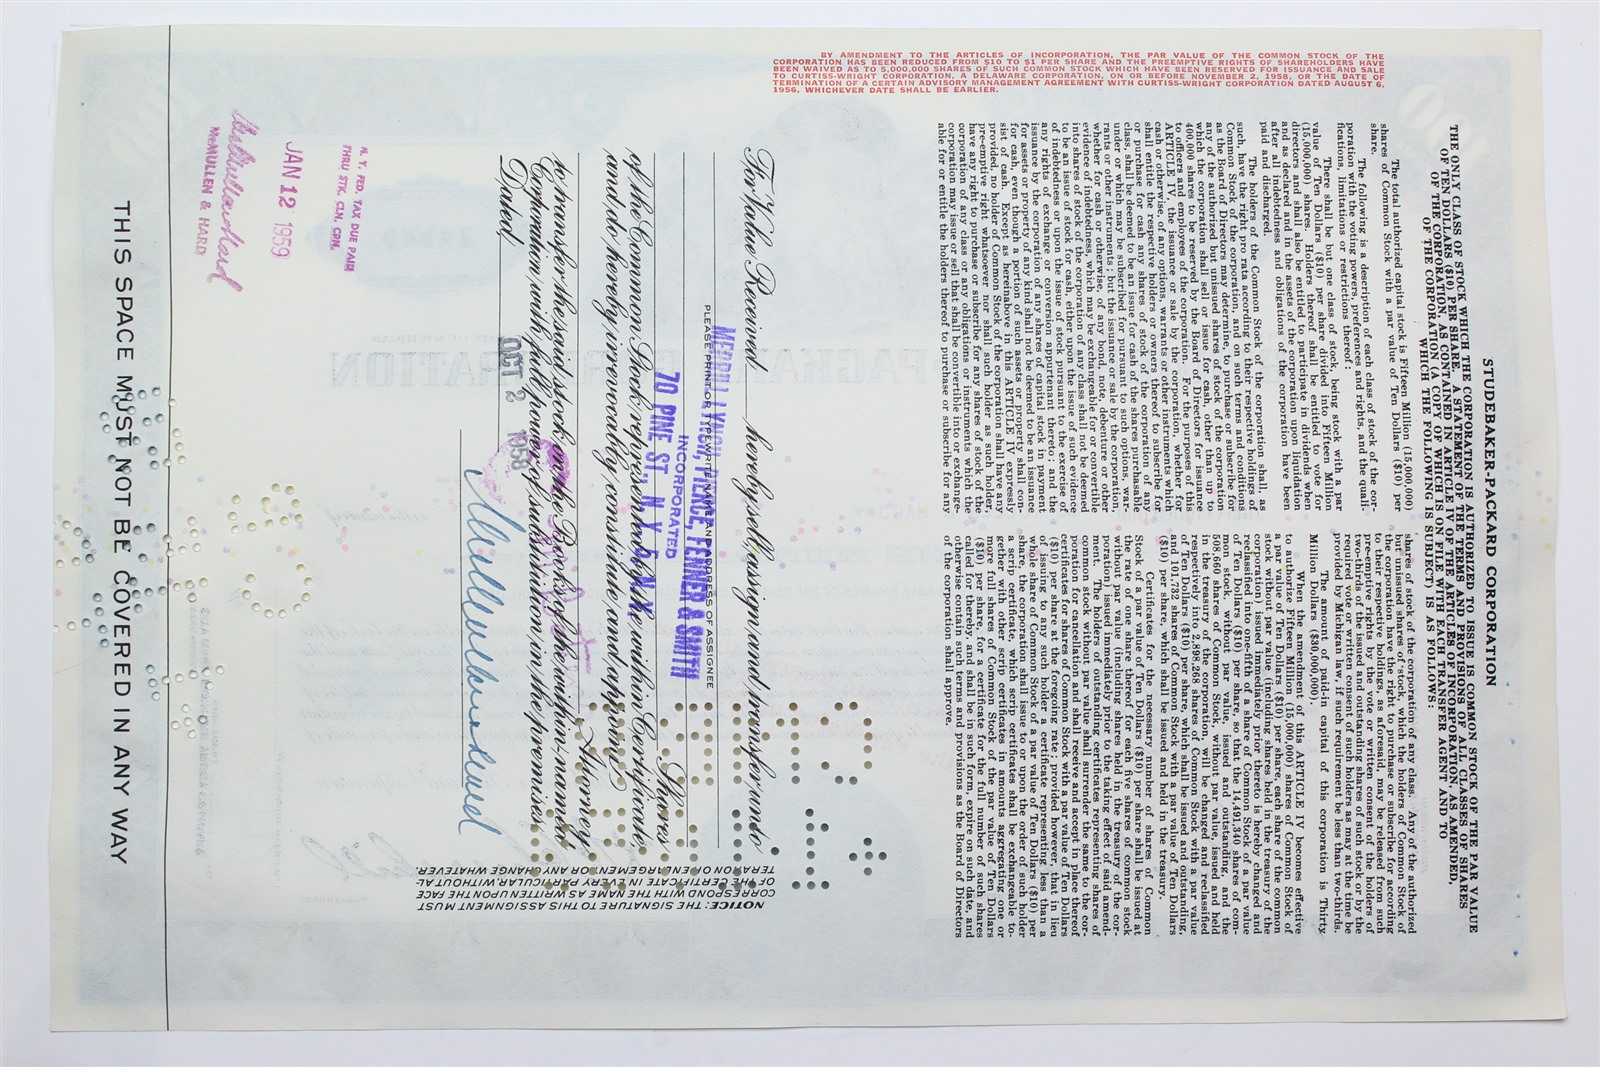 BY AMENDMENT TO THE ARTICLES OF INCORPORATION, THE PAR VALUE OF THE COMMON STOCK OF THE
CORPORATION HAS BEEN REDUCED FROM $10 TO $1 PER SHARE AND THE PREEMPTIVE RIGHTS OF SHAREHOLDERS HAVE
BEEN WAIVED AS TO 5,000,000 SHARES OF SUCH COMMON STOCK WHICH HAVE BEEN RESERVED FOR ISSUANCE AND SALE
TO CURTISS-WRIGHT CORPORATION, A DELAWARE CORPORATION, ON OR BEFORE NOVEMBER 2, 1958, OR THE DATE OF
TERMINATION OF A CERTAIN ADVISORY MANAGEMENT AGREEMENT WITH CURTISS-WRIGHT CORPORATION DATED AUGUST 6,
1956, WHICHEVER DATE SHALL BE EARLIER.
STUDEBAKER-PACKARD CORPORATION
THE ONLY CLASS OF STOCK WHICH THE CORPORATION IS AUTHORIZED TO ISSUE IS COMMON STOCK OF THE PAR VALUE
OF TEN DOLLARS ($10) PER SHARE. A STATEMENT OF THE TERMS AND PROVISIONS OF ALL CLASSES OF SHARES
OF THE CORPORATION, AS CONTAINED IN ARTICLE IV OF THE ARTICLES OF INCORPORATION, AS AMENDED,
OF THE CORPORATION (A COPY OF WHICH IS ON FILE WITH EACH TRANSFER AGENT AND TO
WHICH THE FOLLOWING IS SUBJECT) IS AS FOLLOWS:
The total authorized capital stock is Fifteen Million (15,000,000)
shares of Common Stock with a par value of Ten Dollars ($10) per
share.
The following is a description of each class of stock of the cor-
poration with the voting powers, preferences and rights, and the quali-
fications, limitations or restrictions thereof:
There shall be but one class of stock, being stock with a par
value of Ten Dollars ($10) per share divided into Fifteen Million
(15,000,000) shares. Holders thereof shall be entitled to vote for
directors and shall also be entitled to participate in dividends when
and as declared and in the assets of the corporation upon liquidation
after all indebtedness and obligations of the corporation have been
paid and discharged.
The holders of the Common Stock of the corporation shall, as
such, have the right pro rata according to their respective holdings of
Common Stock of the corporation, and on such terms and conditions
as the Board of Directors may determine, to purchase or subscribe for
any of the authorized but unissued shares of stock of the corporation
which the corporation shall sell or issue for cash, other than up to
400,000 shares to be reserved by the Board of Directors for issuance
to officers and employees of the corporation. For the purposes of this
ARTICLE IV, the issuance or sale by the corporation, whether for
cash or otherwise, of any options, warrants or other instruments which
shall entitle the respective holders or owners thereof to subscribe for
or purchase for cash any shares of stock of the corporation of any
class, shall be deemed to be an issue for cash of the shares purchasable
under or which may be subscribed for pursuant to such options, war-
rants or other instruments; but the issuance or sale by the corporation,
whether for cash or otherwise, of any bond, note, debenture or other
evidence of indebtedness, which may be exchangeable for or convertible
into shares of stock of the corporation of any class shall not be deemed
to be an issue of stock for cash, either upon the issue of such evidence
of indebtedness or upon the issue of stock pursuant to the exercise of
any rights of exchange or conversion appurtenant thereto; and the
issuance by the corporation of any shares of capital stock in payment
for assets or property of any kind shall not be deemed to be an issuance
for cash, even though a portion of such assets or property shall con-
sist of cash. Except as hereinabove in this ARTICLE IV expressly
provided, no holder of Common Stock of the corporation shall have any
pre-emptive right whatsoever nor shall such holder, as such holder,
have any right to purchase or subscribe for any shares of stock of the
corporation of any class or any obligations or instruments which the
corporation may issue or sell that shall be convertible into or exchange-
able for or entitle the holders thereof to purchase or subscribe for any
shares of stock of the corporation of any class. Any of the authorized
but unissued shares of stock, which the holders of Common Stock of
the corporation have the right to purchase or subscribe for according
to their respective holdings, as aforesaid, may be released from such
pre-emptive rights by the vote or written consent of the holders of
two-thirds of the issued and outstanding shares of such stock or by the
required vote or written consent of such holders as may at the time be
provided by Michigan law, if such requirement be less than two-thirds.
The amount of paid-in capital of this corporation is Thirty
Million Dollars ($30,000,000).
When the amendment of this ARTICLE IV becomes effective
to authorize Fifteen Million (15,000,000) shares of Common Stock of
a par value of Ten Dollars ($10) per share, each share of the common
stock without par value (including any share held in the treasury of the
corporation) issued immediately prior thereto is hereby changed and
reclassified into one-fifth of a share of Common Stock of a par value
of Ten Dollars ($10) per share, so that the 14,491,340 shares of com-
mon stock, without par value, issued and outstanding, and the
508,660 shares of Common Stock, without par value, issued and held
in the treasury of the corporation, will be changed and reclassified
respectively into 2,898,268 shares of Common Stock with a par value
of Ten Dollars ($10) per share, which shall be issued and outstanding,
and 101,732 shares of Common Stock with a par value of Ten Dollars
($10) per share, which shall be issued and in the treasury.
Certificates for the necessary number of shares of Common
Stock of a par value of Ten Dollars ($10) per share shall be issued at
the rate of one share thereof for each five shares of common stock
without par value (including shares held in the treasury of the cor-
poration) issued immediately prior to the taking effect of said amend-
ment. The holders of outstanding certificates representing shares of
common stock without par value shall surrender the same to the cor-
poration for cancellation and shall receive and accept in place thereof
certificates for shares of Common Stock with a par value of Ten Dollars
($10) per share at the foregoing rate; provided however, that in lieu
of issuing to any such holder a certificate representing less than a
whole share of Common Stock of a par value of Ten Dollars ($10) per
share, the corporation shall issue to or upon the order of such holder
a scrip certificate, which scrip certificates shall be exchangeable to-
gether with other scrip certificates in amounts aggregating one or
more full shares of Common Stock of the par value of Ten Dollars
($10) per share, for a certificate for the full number of such shares
called for thereby, and shall be in such form, expire on such date, and
otherwise contain such terms and provisions as the Board of Directors
of the corporation shall approve.
For Value Received hereby sell, assign and transfer unto
MERRILL LYNCH, PIERCE, FENNER & SMITH
PLEASE PRINT OR TYPEWRITE NAME AND ADDRESS OF ASSIGNEE
INCORPORATED
70 PINE ST., N. Y. 5, N. Y.
Shares
of the Common Stock represented by the within Certificate
and do hereby irrevocably constitute and appoint
Attorney
to transfer the said stock on the Books of the within-named
Corporation with full power of substitution in the premises.
Dated, OCT 2 1958
McMullen & Hard
NOTICE: THE SIGNATURE TO THIS ASSIGNMENT MUST
CORRESPOND WITH THE NAME AS WRITTEN UPON THE FACE
OF THE CERTIFICATE IN EVERY PARTICULAR, WITHOUT AL-
TERATION OR ENLARGEMENT OR ANY CHANGE WHATEVER.
N. Y. FED. TAX DUE PAID
THRU STK. CLN. CPN.
JAN 12 1959
McMullen & Hard
McMULLEN & HARD
THIS SPACE MUST NOT BE COVERED IN ANY WAY